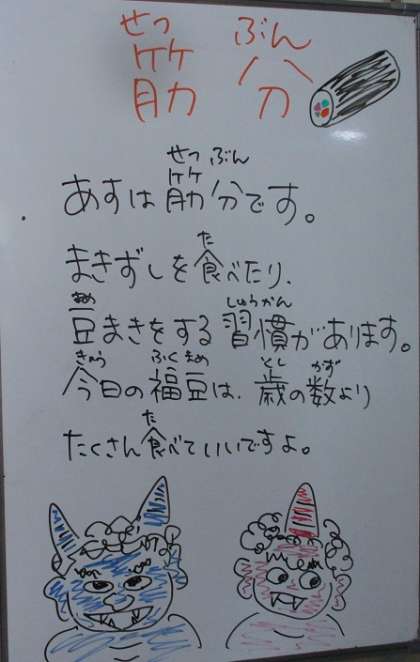 せつ ぶん
筋 分
せつ ぶん
あすは筋分です。
た
まきずしを食べたり、
まめ しゅうかん
豆まきをする習慣があります。
きょう ふくまめ とし かず
今日の福豆は、歳の数より
た
たくさん食べていいですよ。